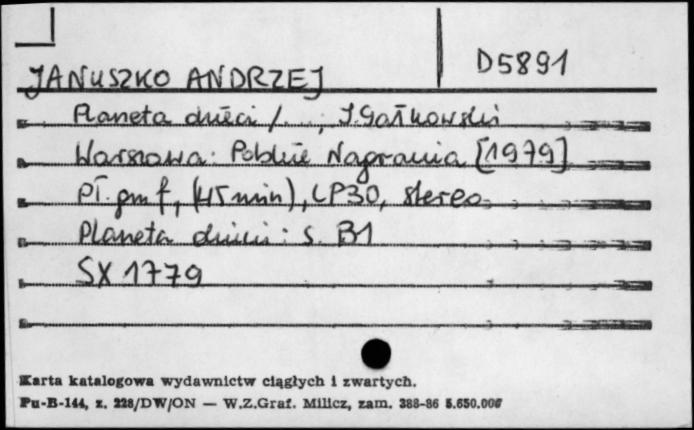 D5891
JANUSZKO ANDRZEJ
Planeta dzieci / ... ; J. Gałkowski
Warszawa: Polskie Nagrania [1979]
Pł. gmf, (45 min), LP30, stereo
Planeta dzieci : s. B1
SX 1779
Karta katalogowa wydawnictw ciągłych i zwartych.
Pu-B-144, z. 228/DW/ON — W.Z.Graf. Milicz, zam. 388-86 5.650.000